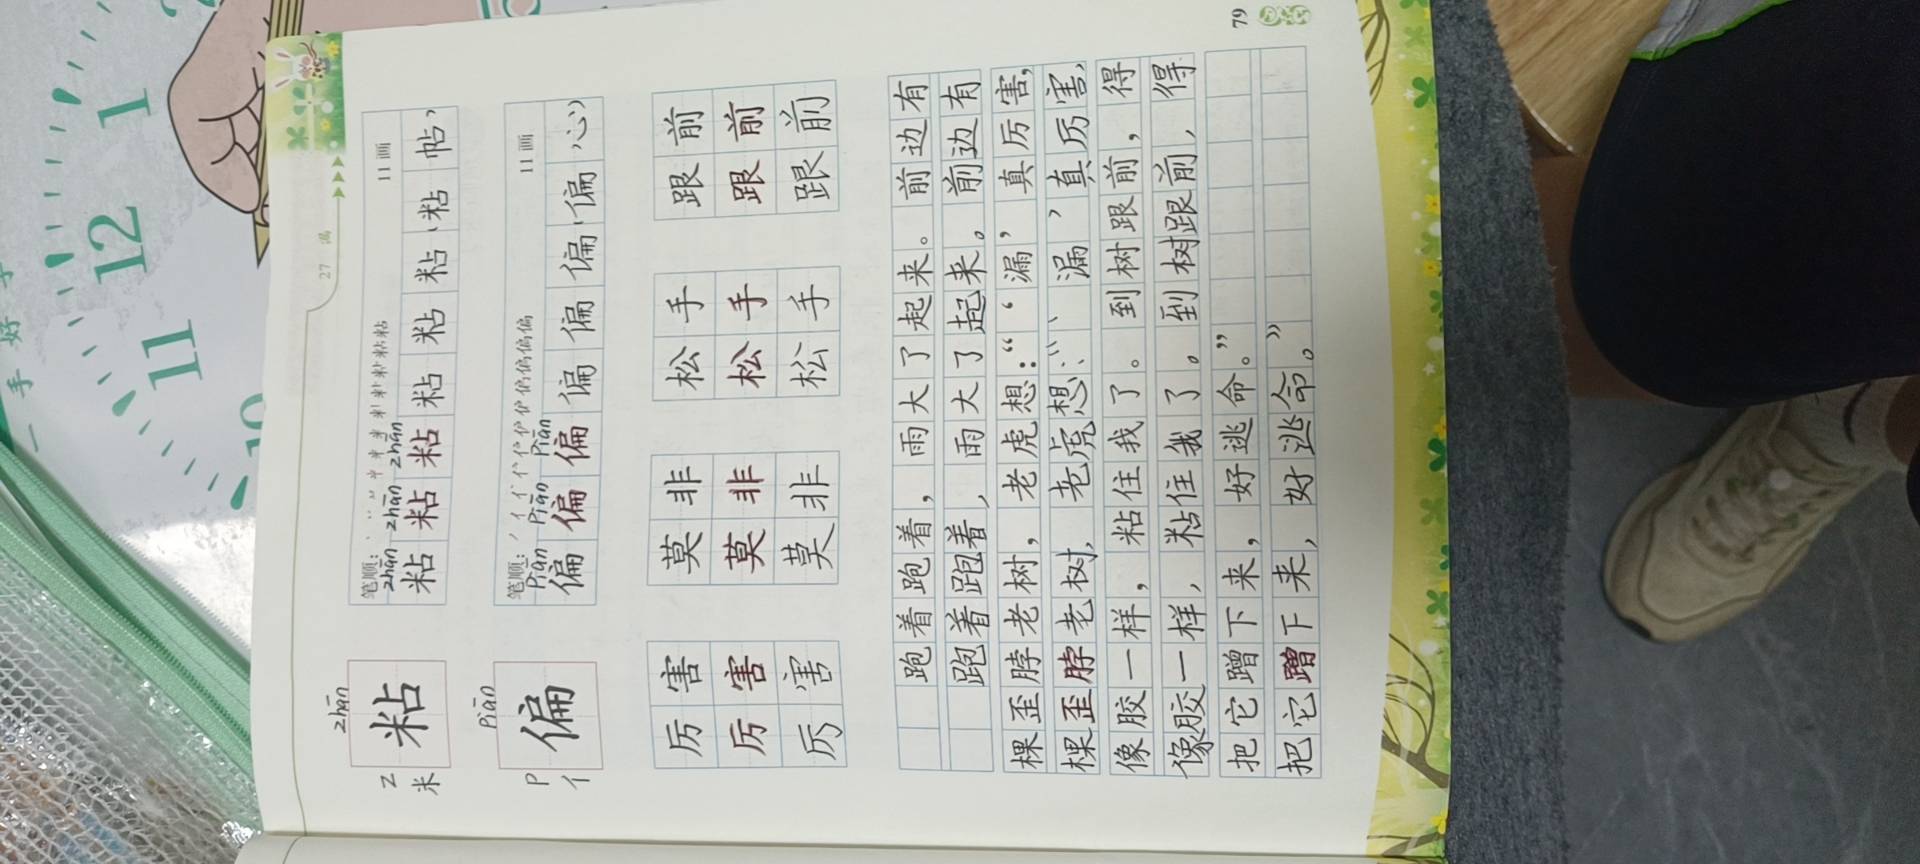 27 漏
zhān
粘
Z
米
笔顺：
11画
zhān zhān zhān
粘 粘 粘 粘 粘 粘 、粘 帖，
piān
偏
P
亻
笔顺：
11画
piān piān piān
偏 偏 偏 偏 偏 偏 、偏 心）
厉害 莫非 松手 跟前
厉害 莫非 松手 跟前
厉害 莫非 松手 跟前
跑着跑着，雨大了起来。前边有
跑着跑着，雨大了起来。前边有
棵歪脖老树，老虎想：“‘漏’真厉害，
棵歪脖老树，老虎想：“‘漏’真厉害，
像胶一样，粘住我了。到树跟前，得
像胶一样，粘住我了。到树跟前，得
把它蹭下来，好逃命。”
把它蹭下来，好逃命。”
79
11 12 1 2
10
一手好字